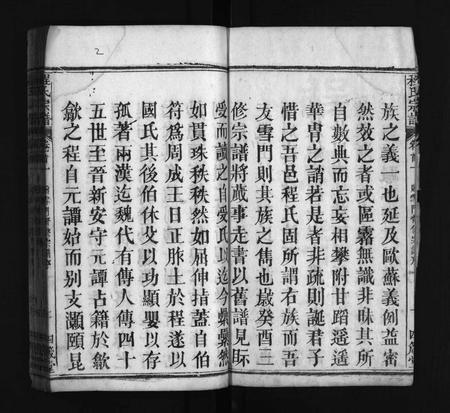 族之義一也延及歐蘇義例益密
然效之者或匿霧無識非昧其所
自數典而忘妄相攀附甘蹈遥遥
華冑之誚若是者非疏則誕君子
惜之吾邑程氏固所謂右族而吾
友雪門則其族之雋也歲癸酉三
修宗譜將蕆事走書以舊譜見眎
受而讀之自受氏以迄今纍纍然
如貫珠秩秩然如屈伸指蓋自伯
符爲周成王日正脈土於程遂以
國氏其後伯休父以功顯嬰以存
孤著兩漢迄魏代有傳人傳四十
五世至晉新安守元譚占籍於歙
歙之程自元譚始而别支灝頤昆
程氏宗譜
2